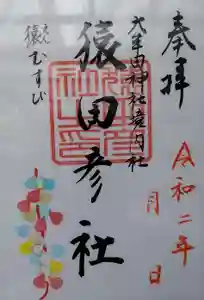 奉拝
令和二年
月
日
大牟田神社境内社
猿田彦社
えん
猿むすび